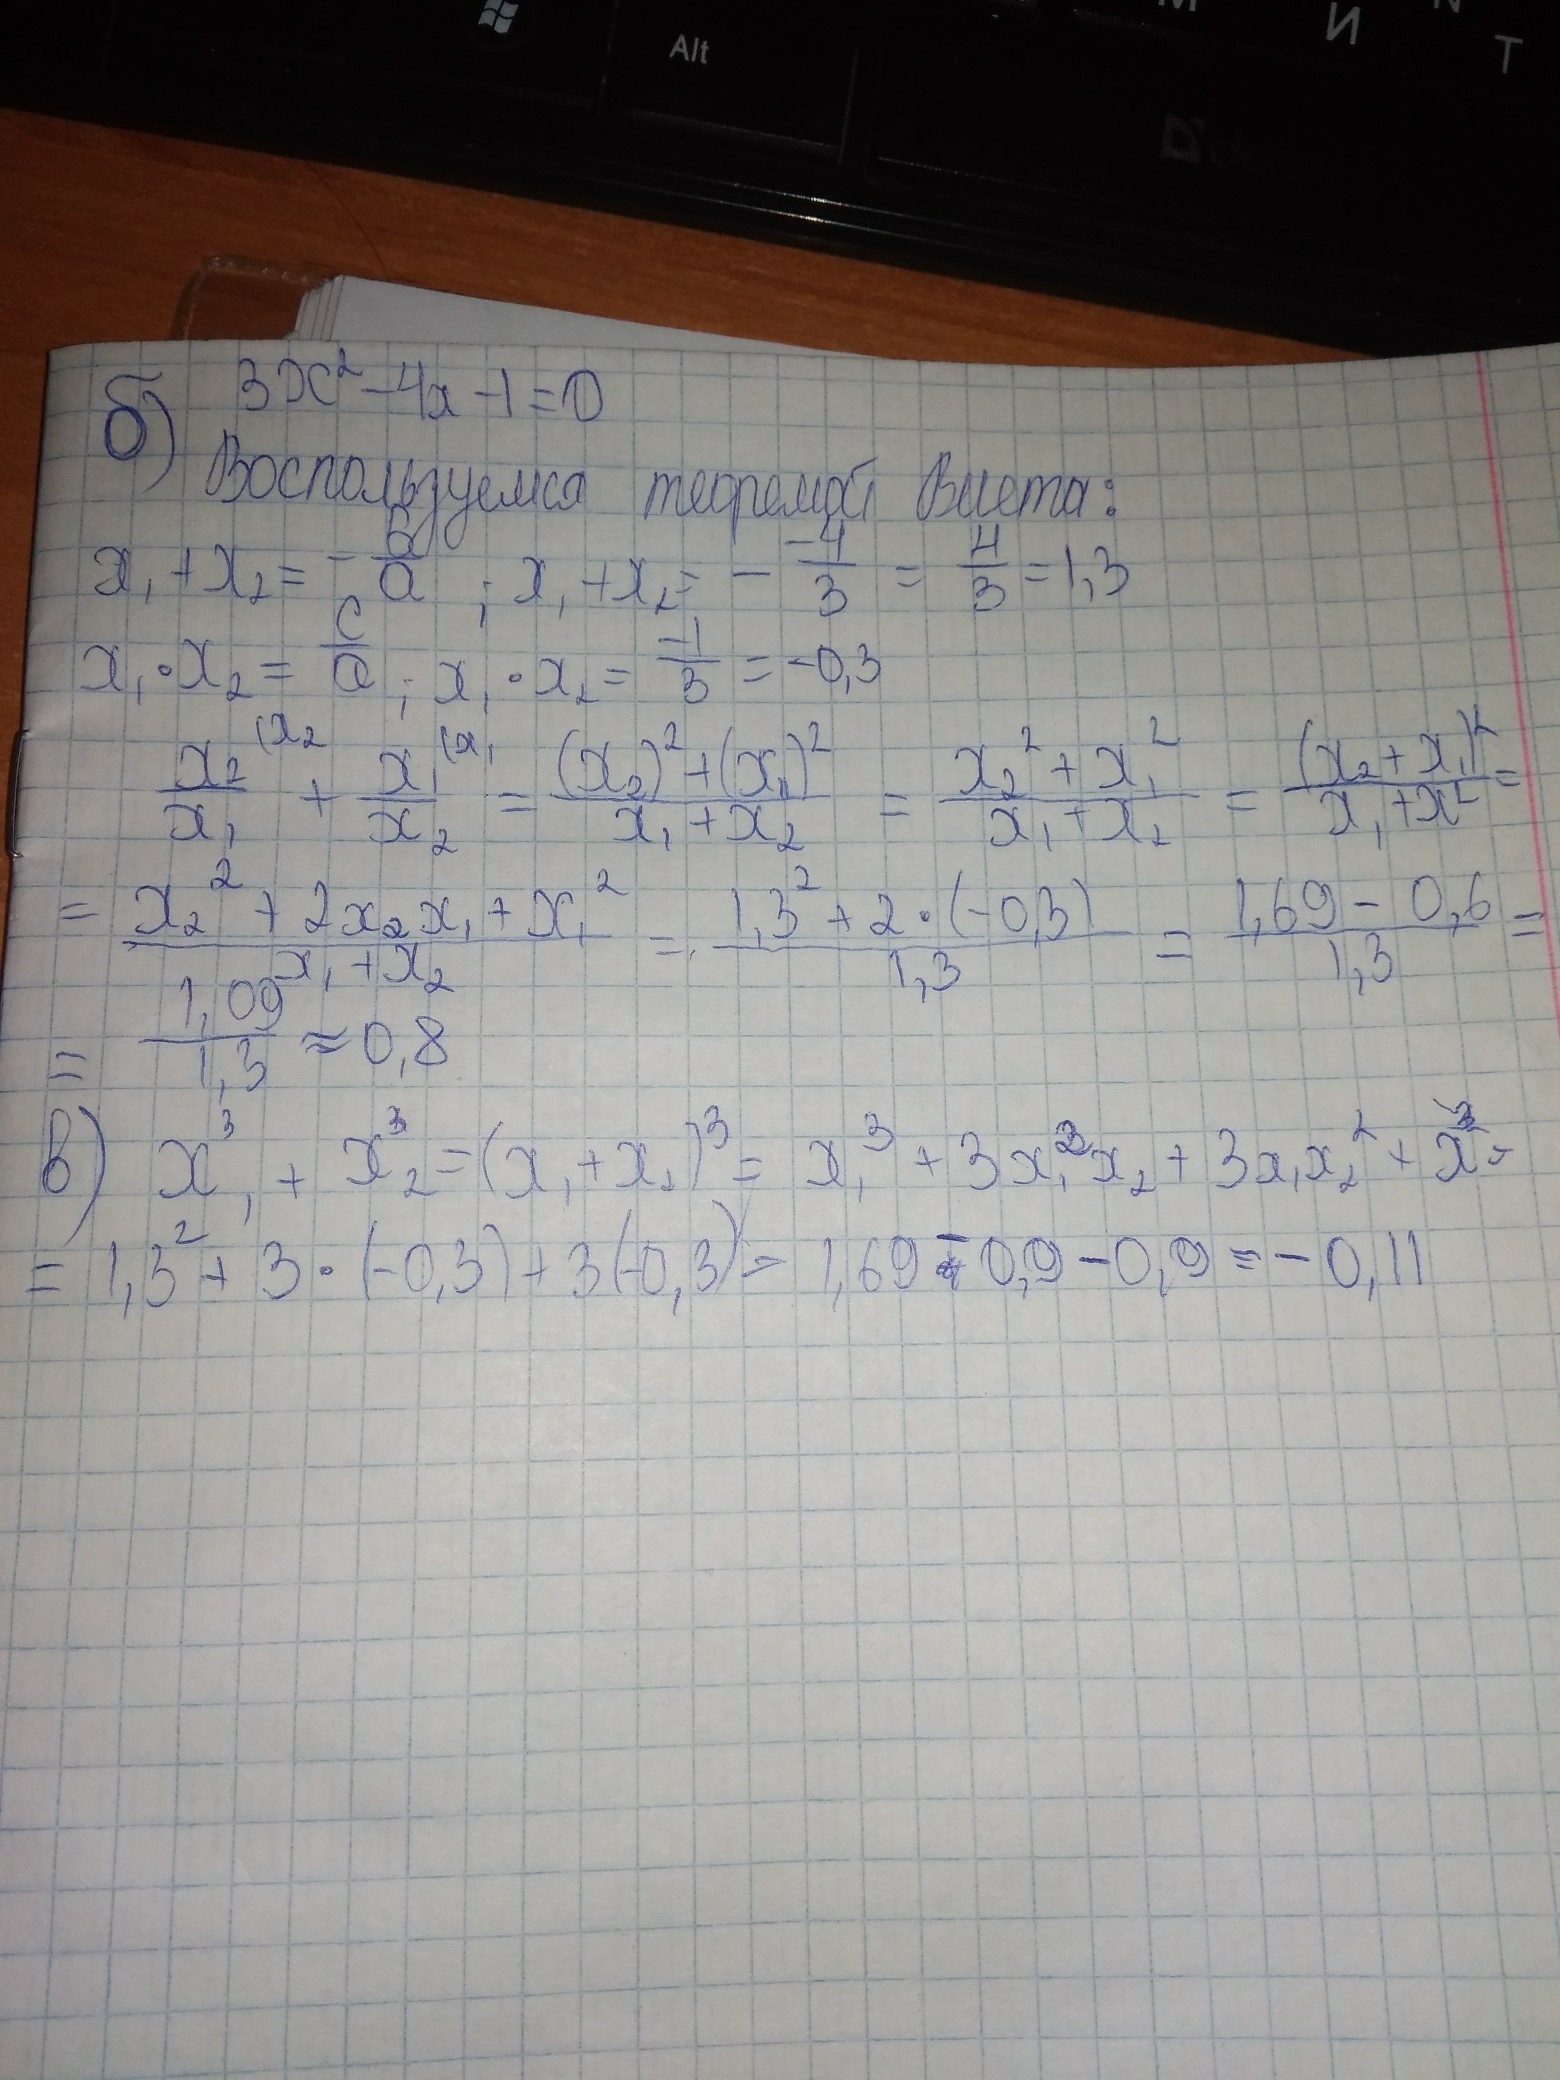 Alt
M
И
N
T
б) 3x² - 4x - 1 = 0
Воспользуемся теоремой Виета:
x₁ + x₂ = - b/a ; x₁ + x₂ = - -4/3 = 4/3 = 1,3
x₁ · x₂ = c/a ; x₁ · x₂ = -1/3 = -0,3
x₂/x₁ (x₂ + x₁/x₂ (x₁ = (x₂)² + (x₁)² / x₁ + x₂ = x₂² + x₁² / x₁ + x₂ = (x₂ + x₁)² / x₁ + x² =
= x₂² + 2x₂x₁ + x₁² / x₁ + x₂ = 1,3² + 2 · (-0,3) / 1,3 = 1,69 - 0,6 / 1,3 =
= 1,09 / 1,3 ≈ 0,8
в) x³₁ + x³₂ = (x₁ + x₂)³ = x₁³ + 3x₁²x₂ + 3x₁x₂² + x³ =
= 1,3² + 3 · (-0,3) + 3(-0,3) = 1,69 - 0,9 - 0,9 = -0,11